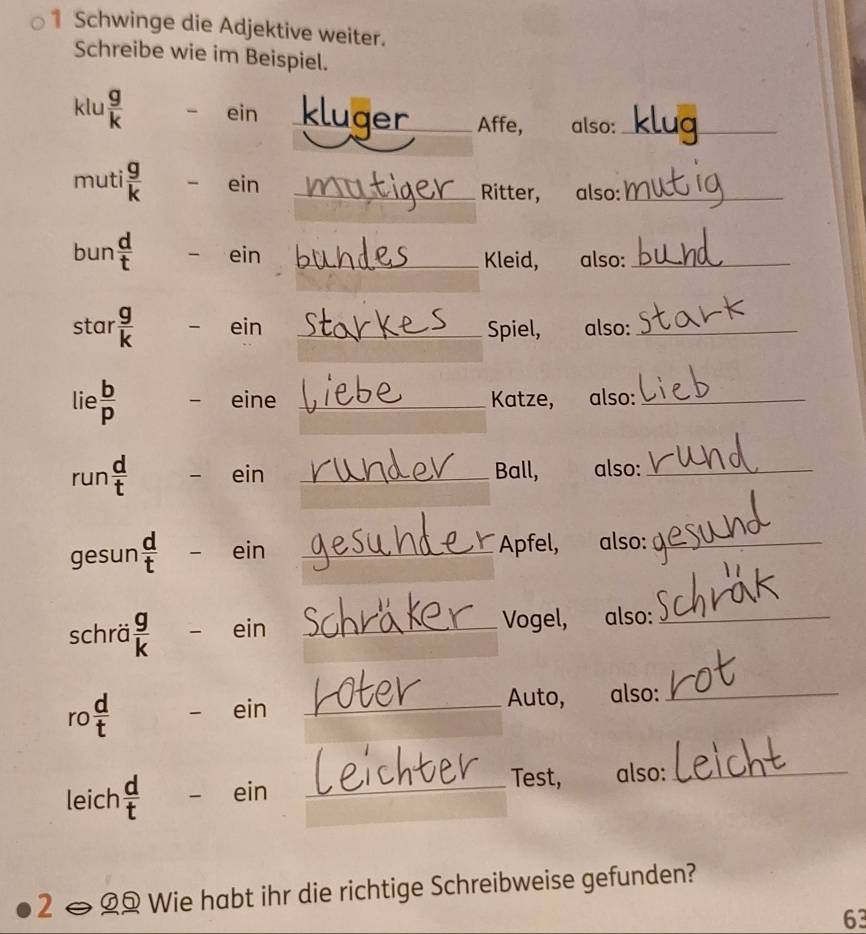 1 Schwinge die Adjektive weiter.
Schreibe wie im Beispiel.
klu g/k - ein kluger Affe, also: klug
muti g/k - ein mutiger Ritter, also: mutig
bun d/t - ein bundes Kleid, also: bund
star g/k - ein starkes Spiel, also: stark
lie b/p - eine Liebe Katze, also: Lieb
run d/t - ein runder Ball, also: rund
gesun d/t - ein gesunder Apfel, also: gesund
schrä g/k - ein schräker Vogel, also: schräk
ro d/t - ein roter Auto, also: rot
leich d/t - ein Leichter Test, also: Leicht
2 Wie habt ihr die richtige Schreibweise gefunden?
63